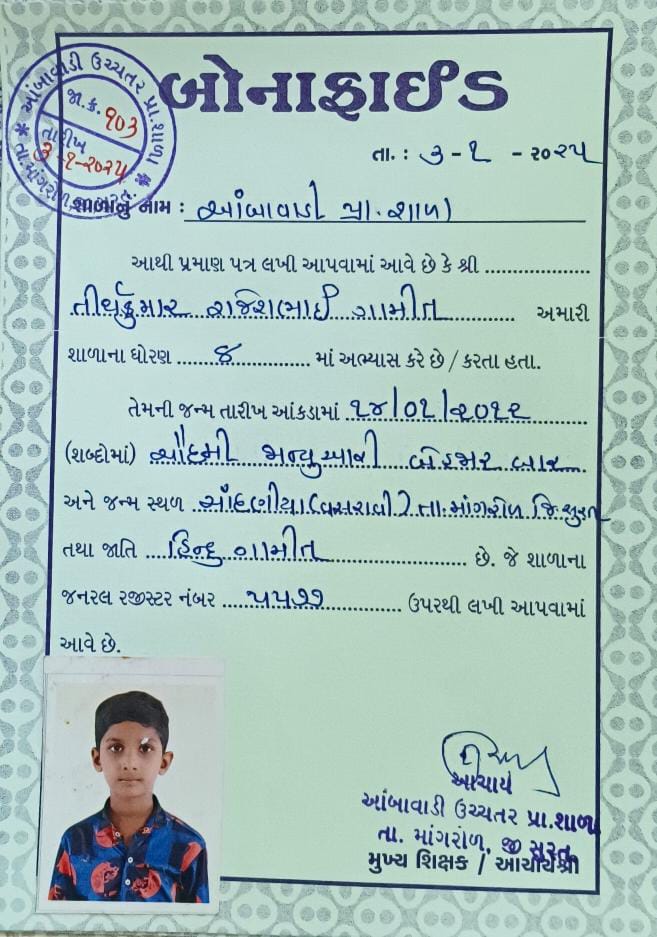 બોનાફાઈડ
* આંબાવાડી ઉચ્ચતર પ્રા.શાળા *
જા.ક્ર. ૧૦૩
તારીખ
૩-૧-૨૦૨૫
તા. : ૩ - ૧ - ૨૦૨૫
શાળાનું નામ : આંબાવાડી પ્રા. શાળા
આથી પ્રમાણ પત્ર લખી આપવામાં આવે છે કે શ્રી
તીર્થકુમાર રાજેશભાઈ ગામીત અમારી
શાળાના ધોરણ ૪ માં અભ્યાસ કરે છે / કરતા હતા.
તેમની જન્મ તારીખ આંકડામાં ૧૪/૦૧/૨૦૧૨
(શબ્દોમાં) ચૌદમી જાન્યુઆરી બેહજાર બાર
અને જન્મ સ્થળ (વસરાવી) તા. માંગરોળ જિ. સુરત
તથા જાતિ હિન્દુ ગામીત છે. જે શાળાના
જનરલ રજીસ્ટર નંબર ૫૫૭૭ ઉપરથી લખી આપવામાં
આવે છે.
આચાર્ય
આંબાવાડી ઉચ્ચતર પ્રા.શાળા
તા. માંગરોળ, જી સુરત
મુખ્ય શિક્ષક / આચાર્યશ્રી